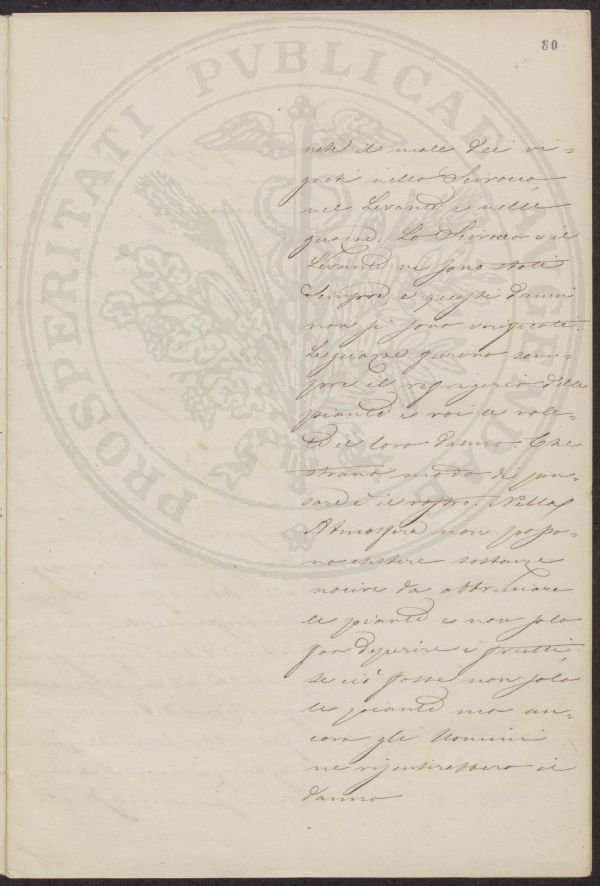 80
nete il male dei vi=
gneti nello Scirocco,
nel Levante e nelle
guazze. Lo Scirocco e il
Levante vi sono stati
sempre, e questi danni
non si sono verificati.
Le guazze furono sem=
pre il refrigerio delle
piante e voi le vole=
te il loro danno. Che
strano modo di pen=
sare è il vostro. Nella
Atmosfera non posso=
no esistere sostanze
nocive da abbruciare
le piante e non solo
far deperire i frutti.
se ciò fosse non solo
le piante ma an=
cora gli Uomini
ne risentirebbero il
danno
PROSPERITATI PVBLICAE AVGENDAE